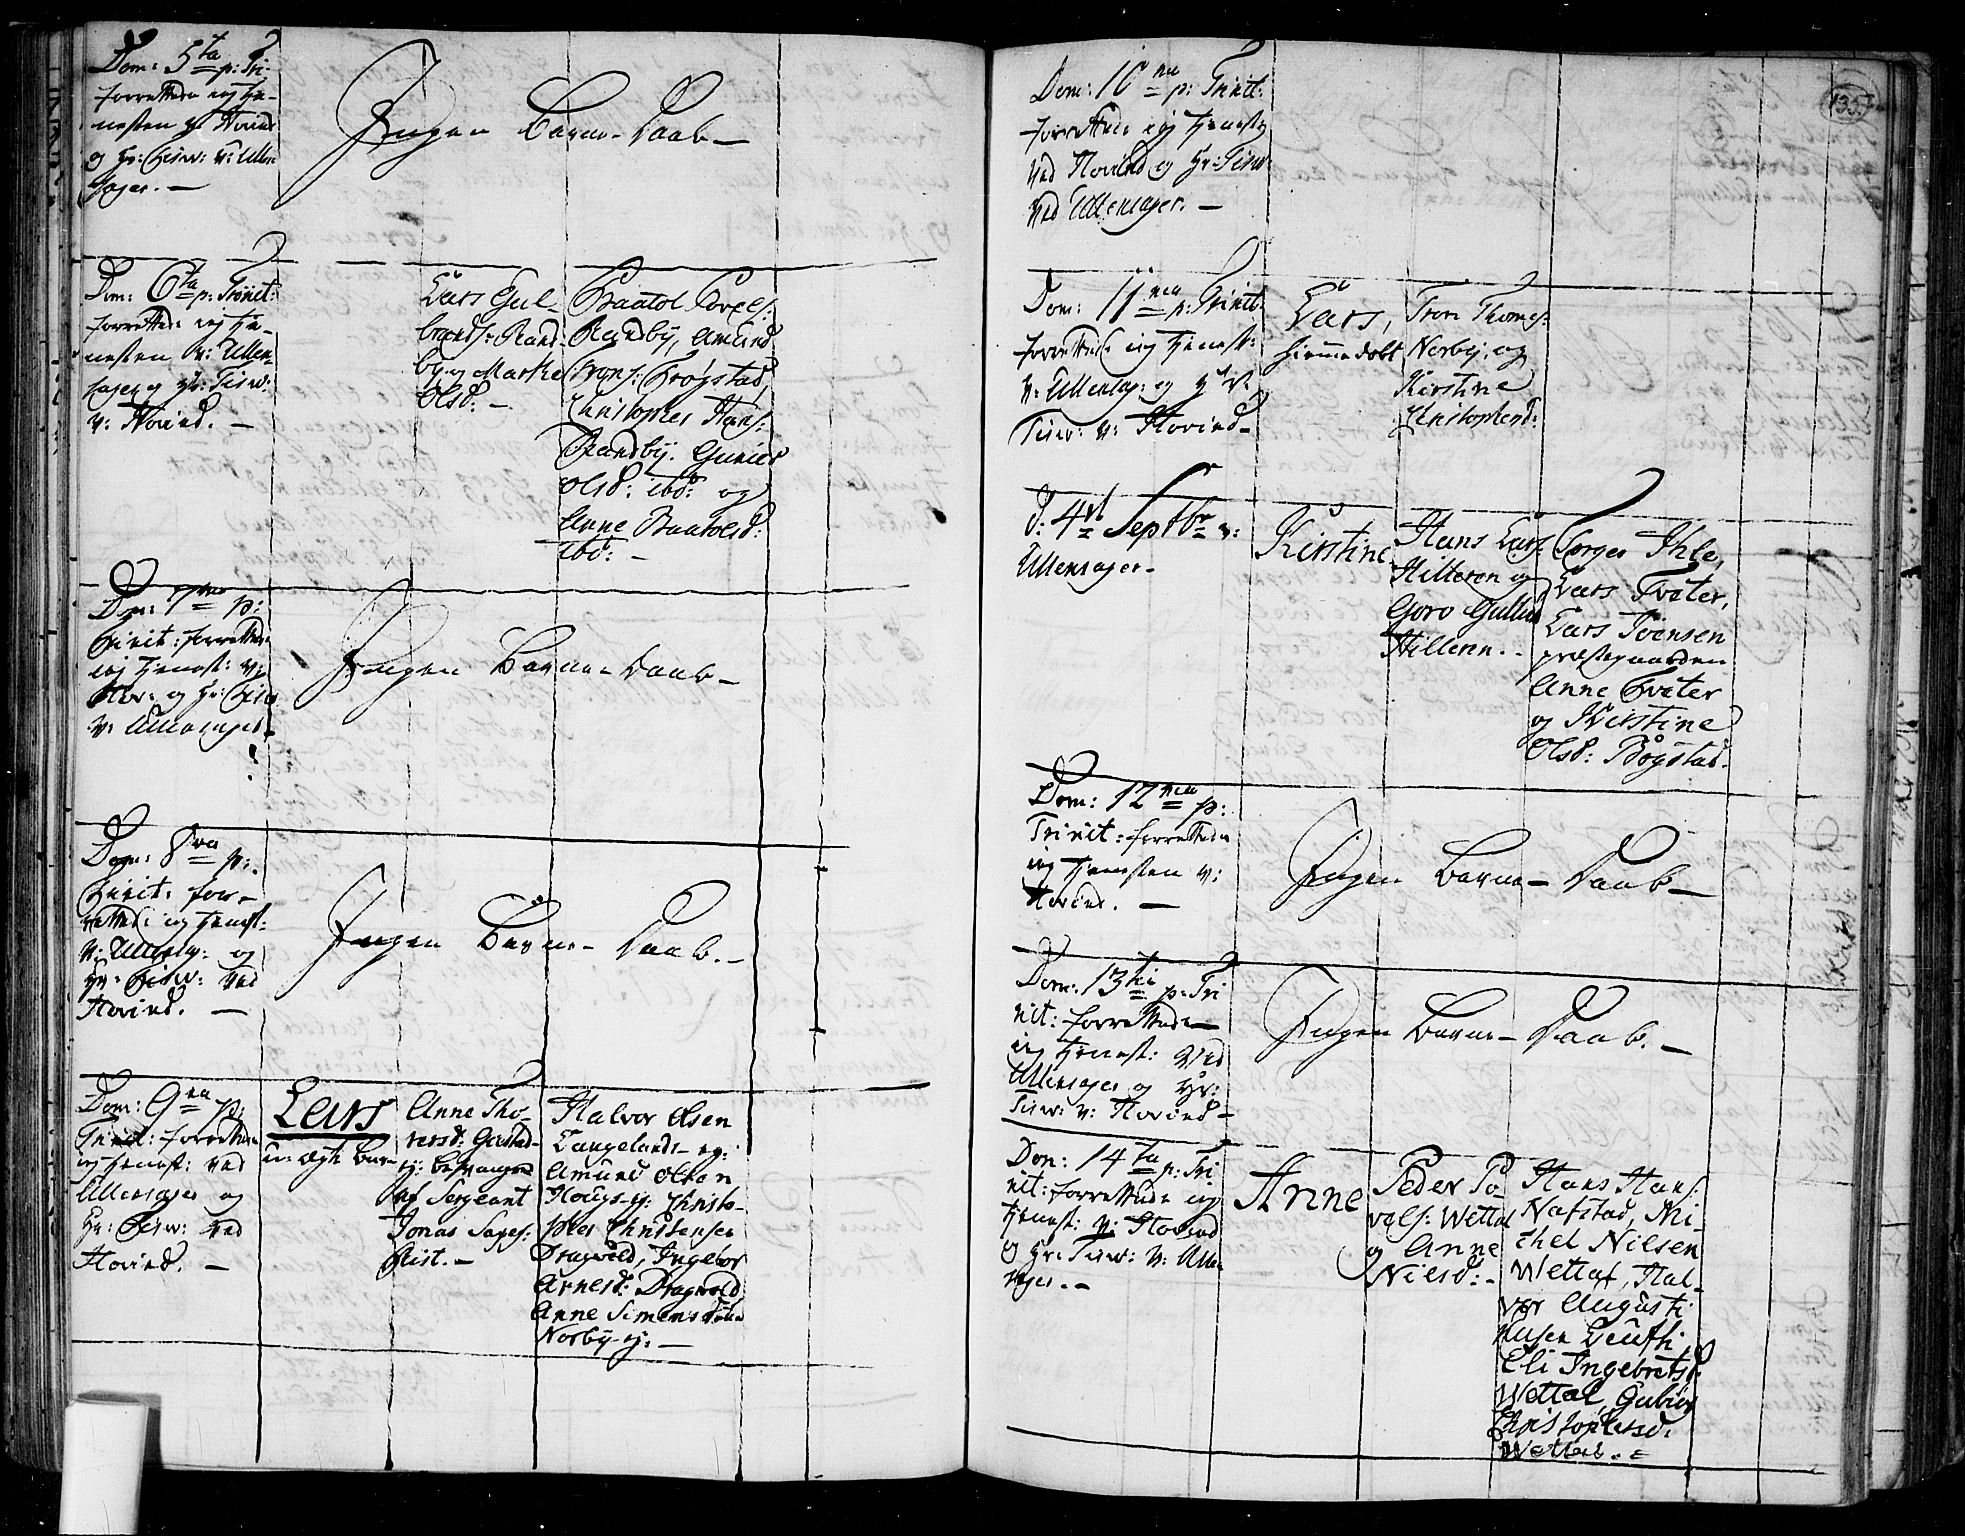 Dom: 5ta p: Tri-
forrettede ieg tie-
nesten v: Hovind
og Hr: Tisw: v: Ullen
sager. —
Ingen Barne-Daab —
Dom: 6ta p: Trinit:
forrettede ieg tie-
nesten v: Ullen-
sager og Hr: Tisw:
v: Hovind. —
Lars Gul-
brands: Rand-
by og Marthe
Olsd: —
Baatol Povels:
Randby, Amund
Hans:
Christopher Hans:
Randby. Gunild
Olsd: ibd: og
Anne Baatolsd:
ibd: —
Dom: 7ma p:
Trinit: forrettede
ieg tienest: v:
Hov: og Hr: Tisw
v: Ullensager —
Ingen Barne-Daab —
Dom: 8va p:
Trinit: for-
rettede ieg tienest:
v: Ullens: og
Hr: Tisw: ved
Hovind. —
Ingen Barne-Daab. —
Dom: 9na p:
Trinit: forrettede
ieg tienest: ved
Ullensager og
Hr: Tisw: ved
Hovind. —
Lars
u: ægte Bar-
Anne Tho-
resd:
ej: besvangred
af Sergeant
Jonas
Halvor Olsen
Langelands- ej:
Amund Olsen
Hougs- ej: Christo-
pher Christensen
Dragvold, Ingebor
Arnesd: Dragvold,
Anne Simensdatter
Norby- ej: —
135.
Dom: 10na p: Trinit:
forrettede ieg tieneste
ved Hovind og Hr: Tisw:
ved Ullensager. —
Dom: 11na p: Trinit:
forrettede ieg tienest:
v: Ullensag: og Hr
Tisw: v: Hovind —
Lars,
hiemmedøbt
Tron Thomes:
Norby, og
Kirstine
Christophersd:
d: 4de Septbr v:
Ullensager —
Kirstine
Hans Lars:
Hilleren og
Goro Gulbr
Hilleren. —
Torger Ihle,
Lars Tveter,
Lars Svensen
præstegaarden
Anne Tveter
og Kirstine
Olsd: Bøgstad.
Dom: 12ma p:
Trinit: forrettede
ieg tienesten v:
Hovind. —
Ingen Barne-Daab —
Dom: 13tia p: Tri
nit: forrettede
ieg tienest: ved
Ullensager og Hr:
Tisw: v: Hovind —
Ingen Barne-Daab. —
Dom: 14ta p: Tri
nit: forrettede ieg
tienest: v: Hovind
og Hr: Tisw: v: Ullen
sager. —
Anne
Peder Po-
vels: Wettal
og Anne
Nilsd: —
Hans Hans:
Nafstad, Mi-
chel Nilsen
Wettal, Hal-
vor Augusti-
nusen
Eli Ingebretsd:
Wettal, Gubiør
Christophersd:
Wettal. =